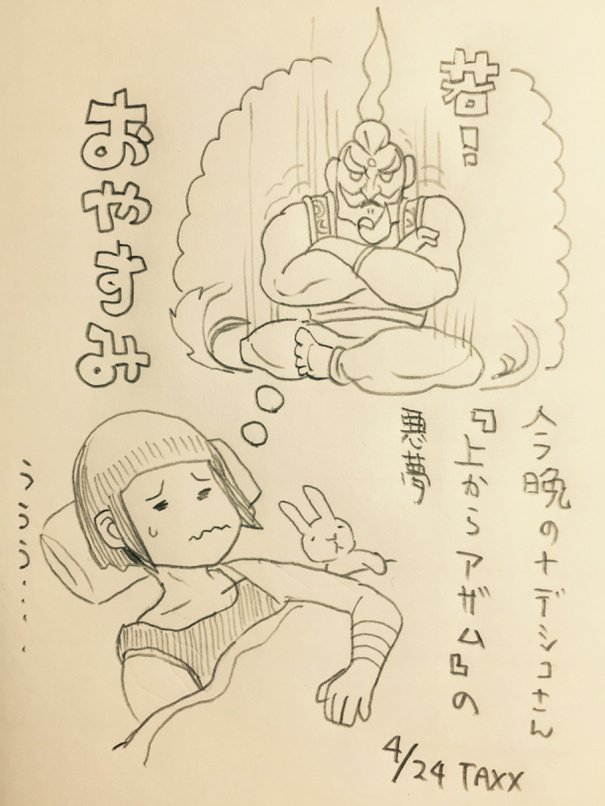 若!!
今晩のナデシコさん
『上からアザム』の
悪夢
おやすま
うううう...
4/24 TAXX